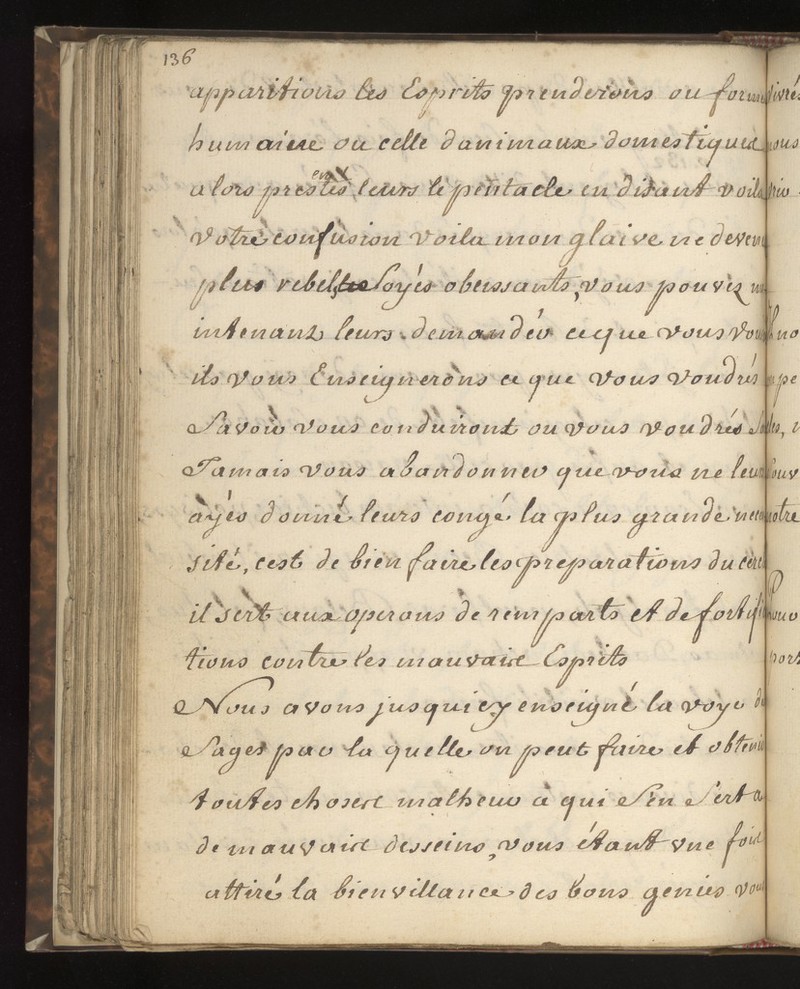 136
apparitions les Esprits prenderons ou forme
humaine ou celle danimaux domestiques
alors presentés leurs le pentacle en disant voila
votre confusion voila mon glaive ne deven
plus rebel Soyés obeissants, vous pouvez m
intenant leurs demander ce que vous vou
ils vous Enseignerons ce que vous voudrés
Savoir vous conduiront ou vous voudrés Sa
Jamais vous abandonner que vous ne leur
ayés donné leurs congé la plus grande nece
sité, cest de bien faire les preparations du cerc
il sert aux operans de remparts et de fortifi
tions contre les mauvaise Esprits
Nous avons jusquicy enseigné la voye de
Sages par la quelle on peut faire et obtenir
toutes choses malheur a qui Sen Sert a
de mauvaise desseins, vous étant vne fois
attiré la bienvillance des bons genies vous